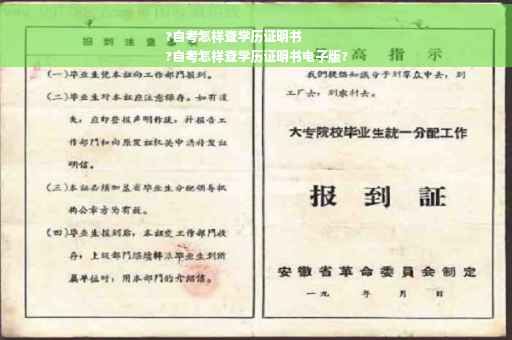 ?自考怎样查学历证明书
?自考怎样查学历证明书电子版?
报到注意
(一)毕业生凭本证向工作部门报到。
(二)毕业生对本证应注意保存。如有遗
失，应即登报声明作废，并报告工
作部门和向原发证机关申请补发证
明信。
(三)本证必须加盖省毕业生分配领导机
构公章方为有效。
(四)毕业生报到后，本证交工作部门收
存；上级部门
属单位时，用本部门的介绍信。
高指示
我们提倡知识分子到群众中去，到
工厂去，到农村去。
大专院校毕业生统一分配工作
报到証
安徽省革命委員会制定
一九 年 月 日